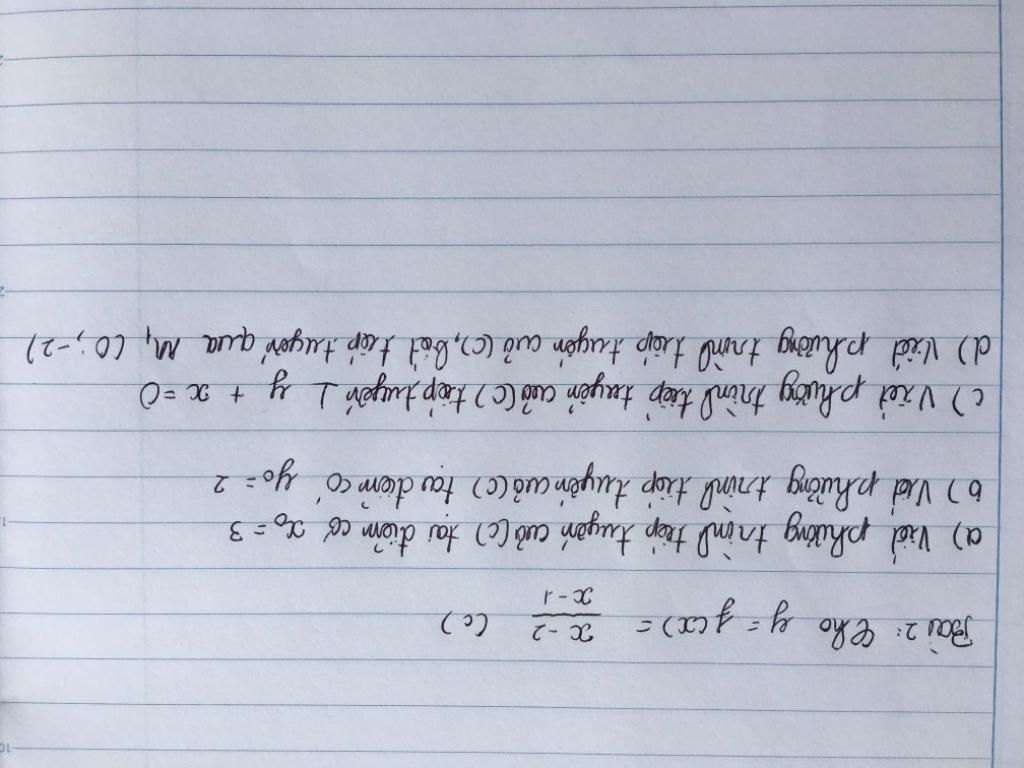 Bài 2: Cho y = f(x) = \frac{x-2}{x-1} (C)
a) Viết phương trình tiếp tuyến của (C) tại điểm có x₀ = 3
b) Viết phương trình tiếp tuyến của (C) tại điểm có y₀ = 2
c) Viết phương trình tiếp tuyến của (C) tiếp tuyến ⊥ y + x = 0
d) Viết phương trình tiếp tuyến của (C), biết tiếp tuyến qua M, (0; -2)